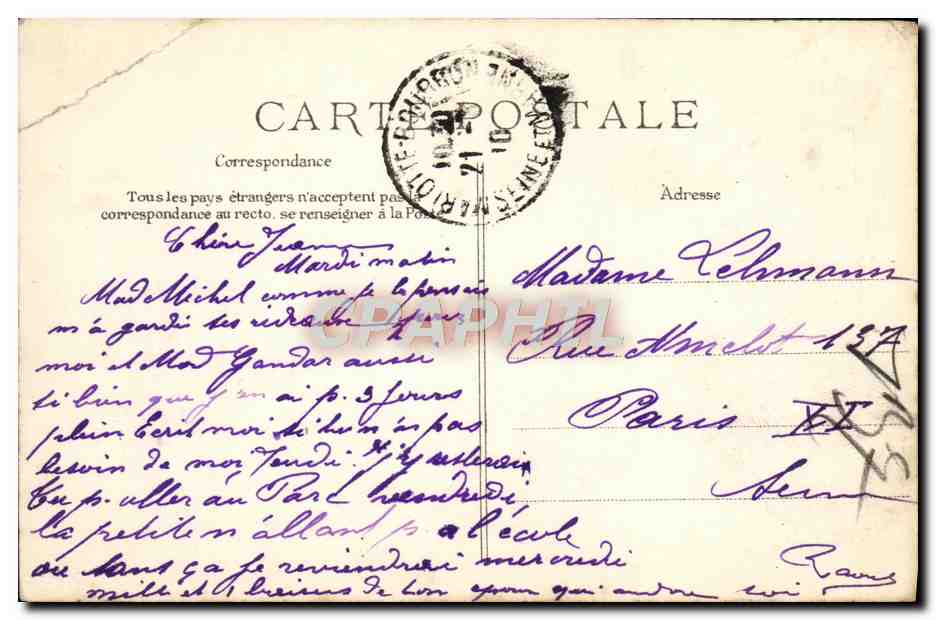 CARTE POSTALE
Correspondance
Tous les pays étrangers n'acceptent pas la
correspondance au recto. se renseigner à la Poste
Adresse
MARLOTTE-BOURRON SEINE ET MARNE
10
21 10
CPAPHIL
Chère Jeanne
Mardi matin
Mad Michel comme je le pensais
m'a gardé ses rideaux pour
moi et Mad Gandar aussi
si bien que j'en ai p. 3 jours
plein Ecris moi si tu n'as pas
besoin de moi Jeudi. j'y resterai
Tu p. aller au Parc Vendredi
la petite n'allant p. a l'école
ou sans ça je reviendrai mercredi
mille et 1 baisers de ton
Madame Lehmann
Rue Amelot 137
Paris XI
Seine
Raoul